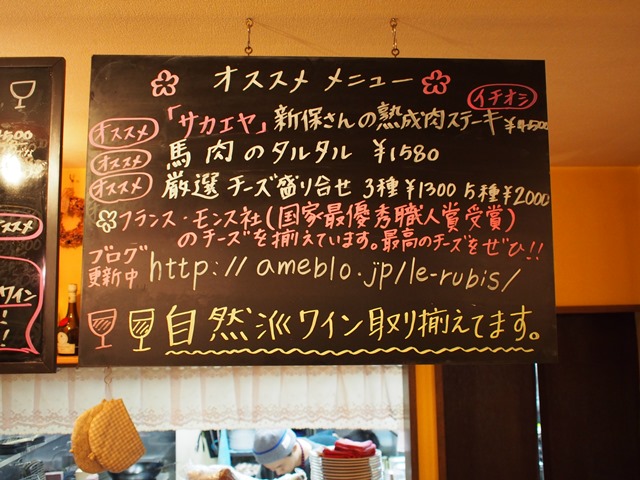 オススメ メニュー
イチオシ
オススメ 「サカエヤ」新保さんの熟成肉ステーキ ¥4500
オススメ 馬肉のタルタル ¥1580
オススメ 厳選チーズ盛り合せ 3種¥1300 5種¥2000
フランス・モンス社(国家最優秀職人賞受賞)
のチーズを揃えています。最高のチーズをぜひ!!
ブログ
更新中 http://ameblo.jp/le-rubis/
自然派ワイン取り揃えてます。
スメ
ワイン